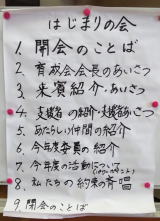 はじまりの会
1. 開会のことば
2. 育成会会長のあいさつ
3. 来賓紹介・あいさつ
4. 支援者の紹介・支援者あいさつ
5. あたらしい仲間の紹介
6. 今年度委員の紹介
7. 今年度の活動について
8. 私たちの約束の斉唱
9. 閉会のことば